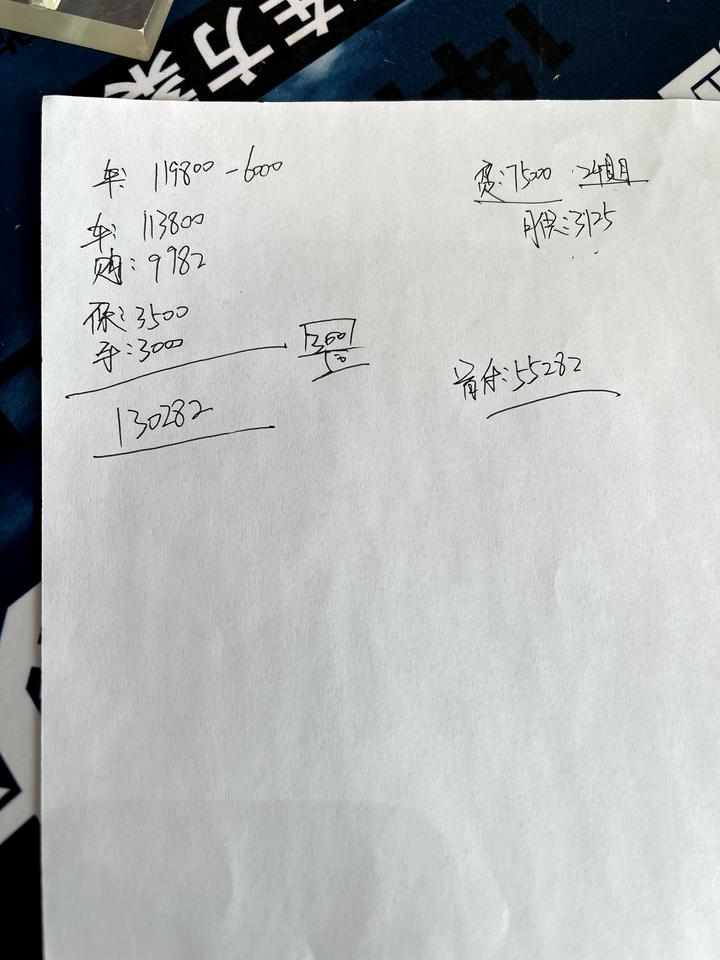 在方案
车: 119800-6000
车: 113800
购: 9982
保: 3500
手: 3000
360
50
130282
贷: 75000 24个月
月供: 3125
首付: 55282